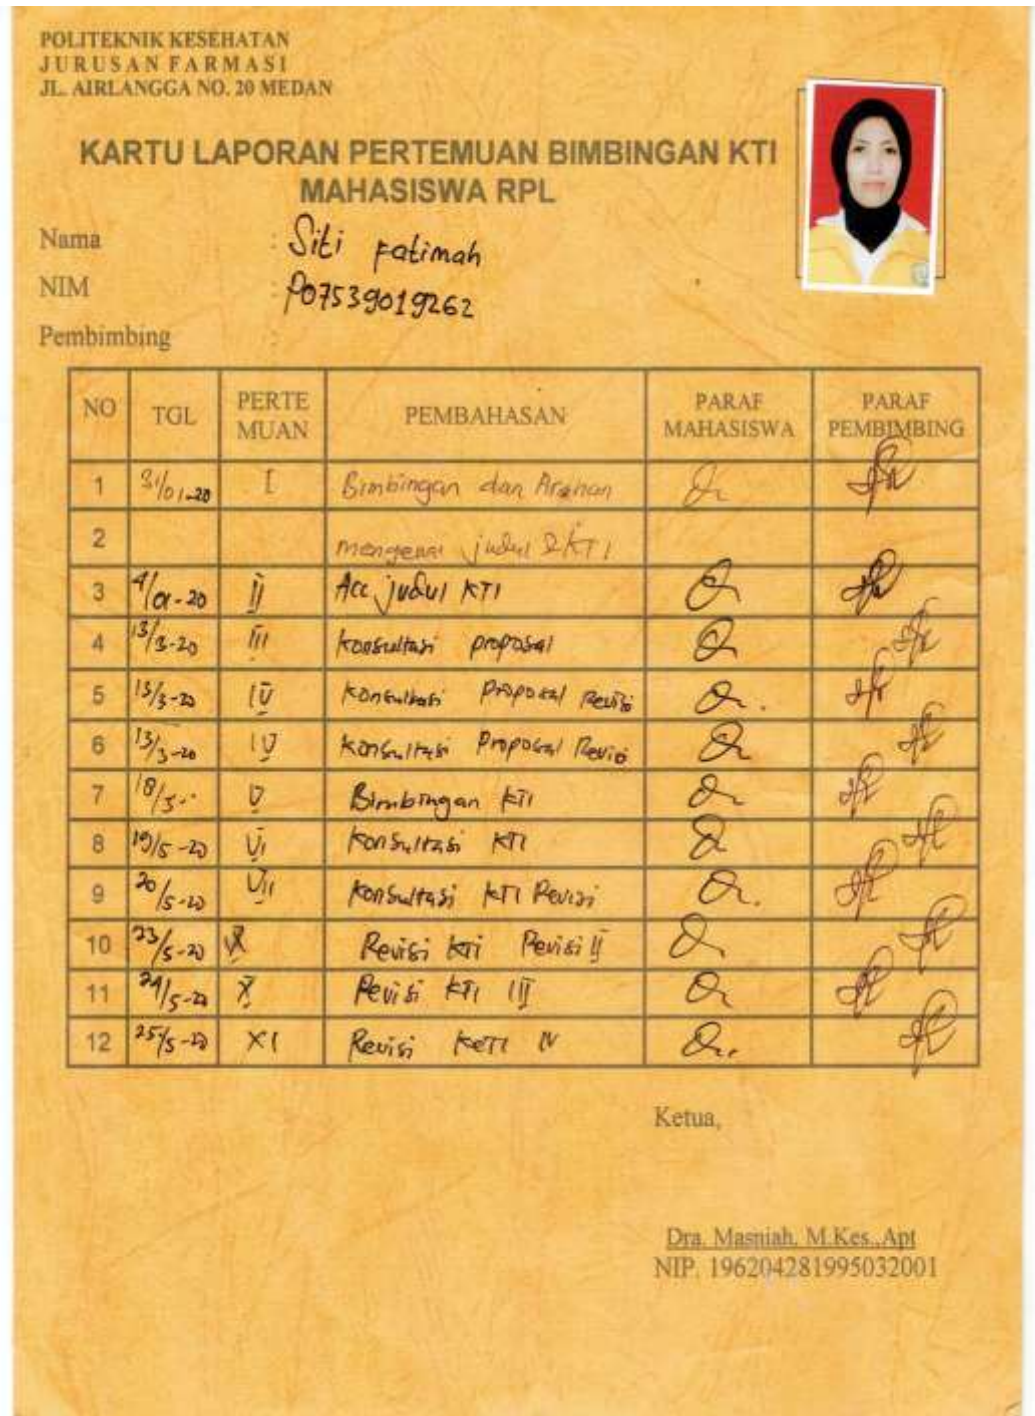 POLITEKNIK KESEHATAN
JURUSAN FARMASI
JL. AIRLANGGA NO. 20 MEDAN
KARTU LAPORAN PERTEMUAN BIMBINGAN KTI
MAHASISWA RPL
Nama : Siti Fatimah
NIM : P07539019262
Pembimbing :
NO TGL PERTE MUAN PEMBAHASAN PARAF MAHASISWA PARAF PEMBIMBING
1 31/01-20 I Bimbingan dan Arahan
2 mengenai judul KTI
3 II Acc judul KTI
4 13/3-20 III konsultasi proposal
5 13/3-20 IV konsultasi Proposal Revisi
6 13/3-20 IV konsultasi Proposal Revisi
7 18/5 V Bimbingan KTI
8 19/5-20 VI konsultasi KTI
9 20/5-20 VII konsultasi KTI Revisi
10 23/5-20 Revisi KTI Revisi II
11 24/5-20 X Revisi KTI III
12 25/5-20 XI Revisi KETI IV
Ketua,
Dra. Masniah, M.Kes.,Apt
NIP. 196204281995032001